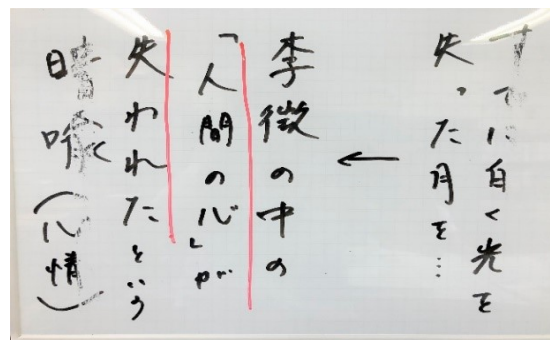 すでに白く光を
失った月を…
←
李徴の中の
「人間の心」が
失われたという
暗喩（心情）